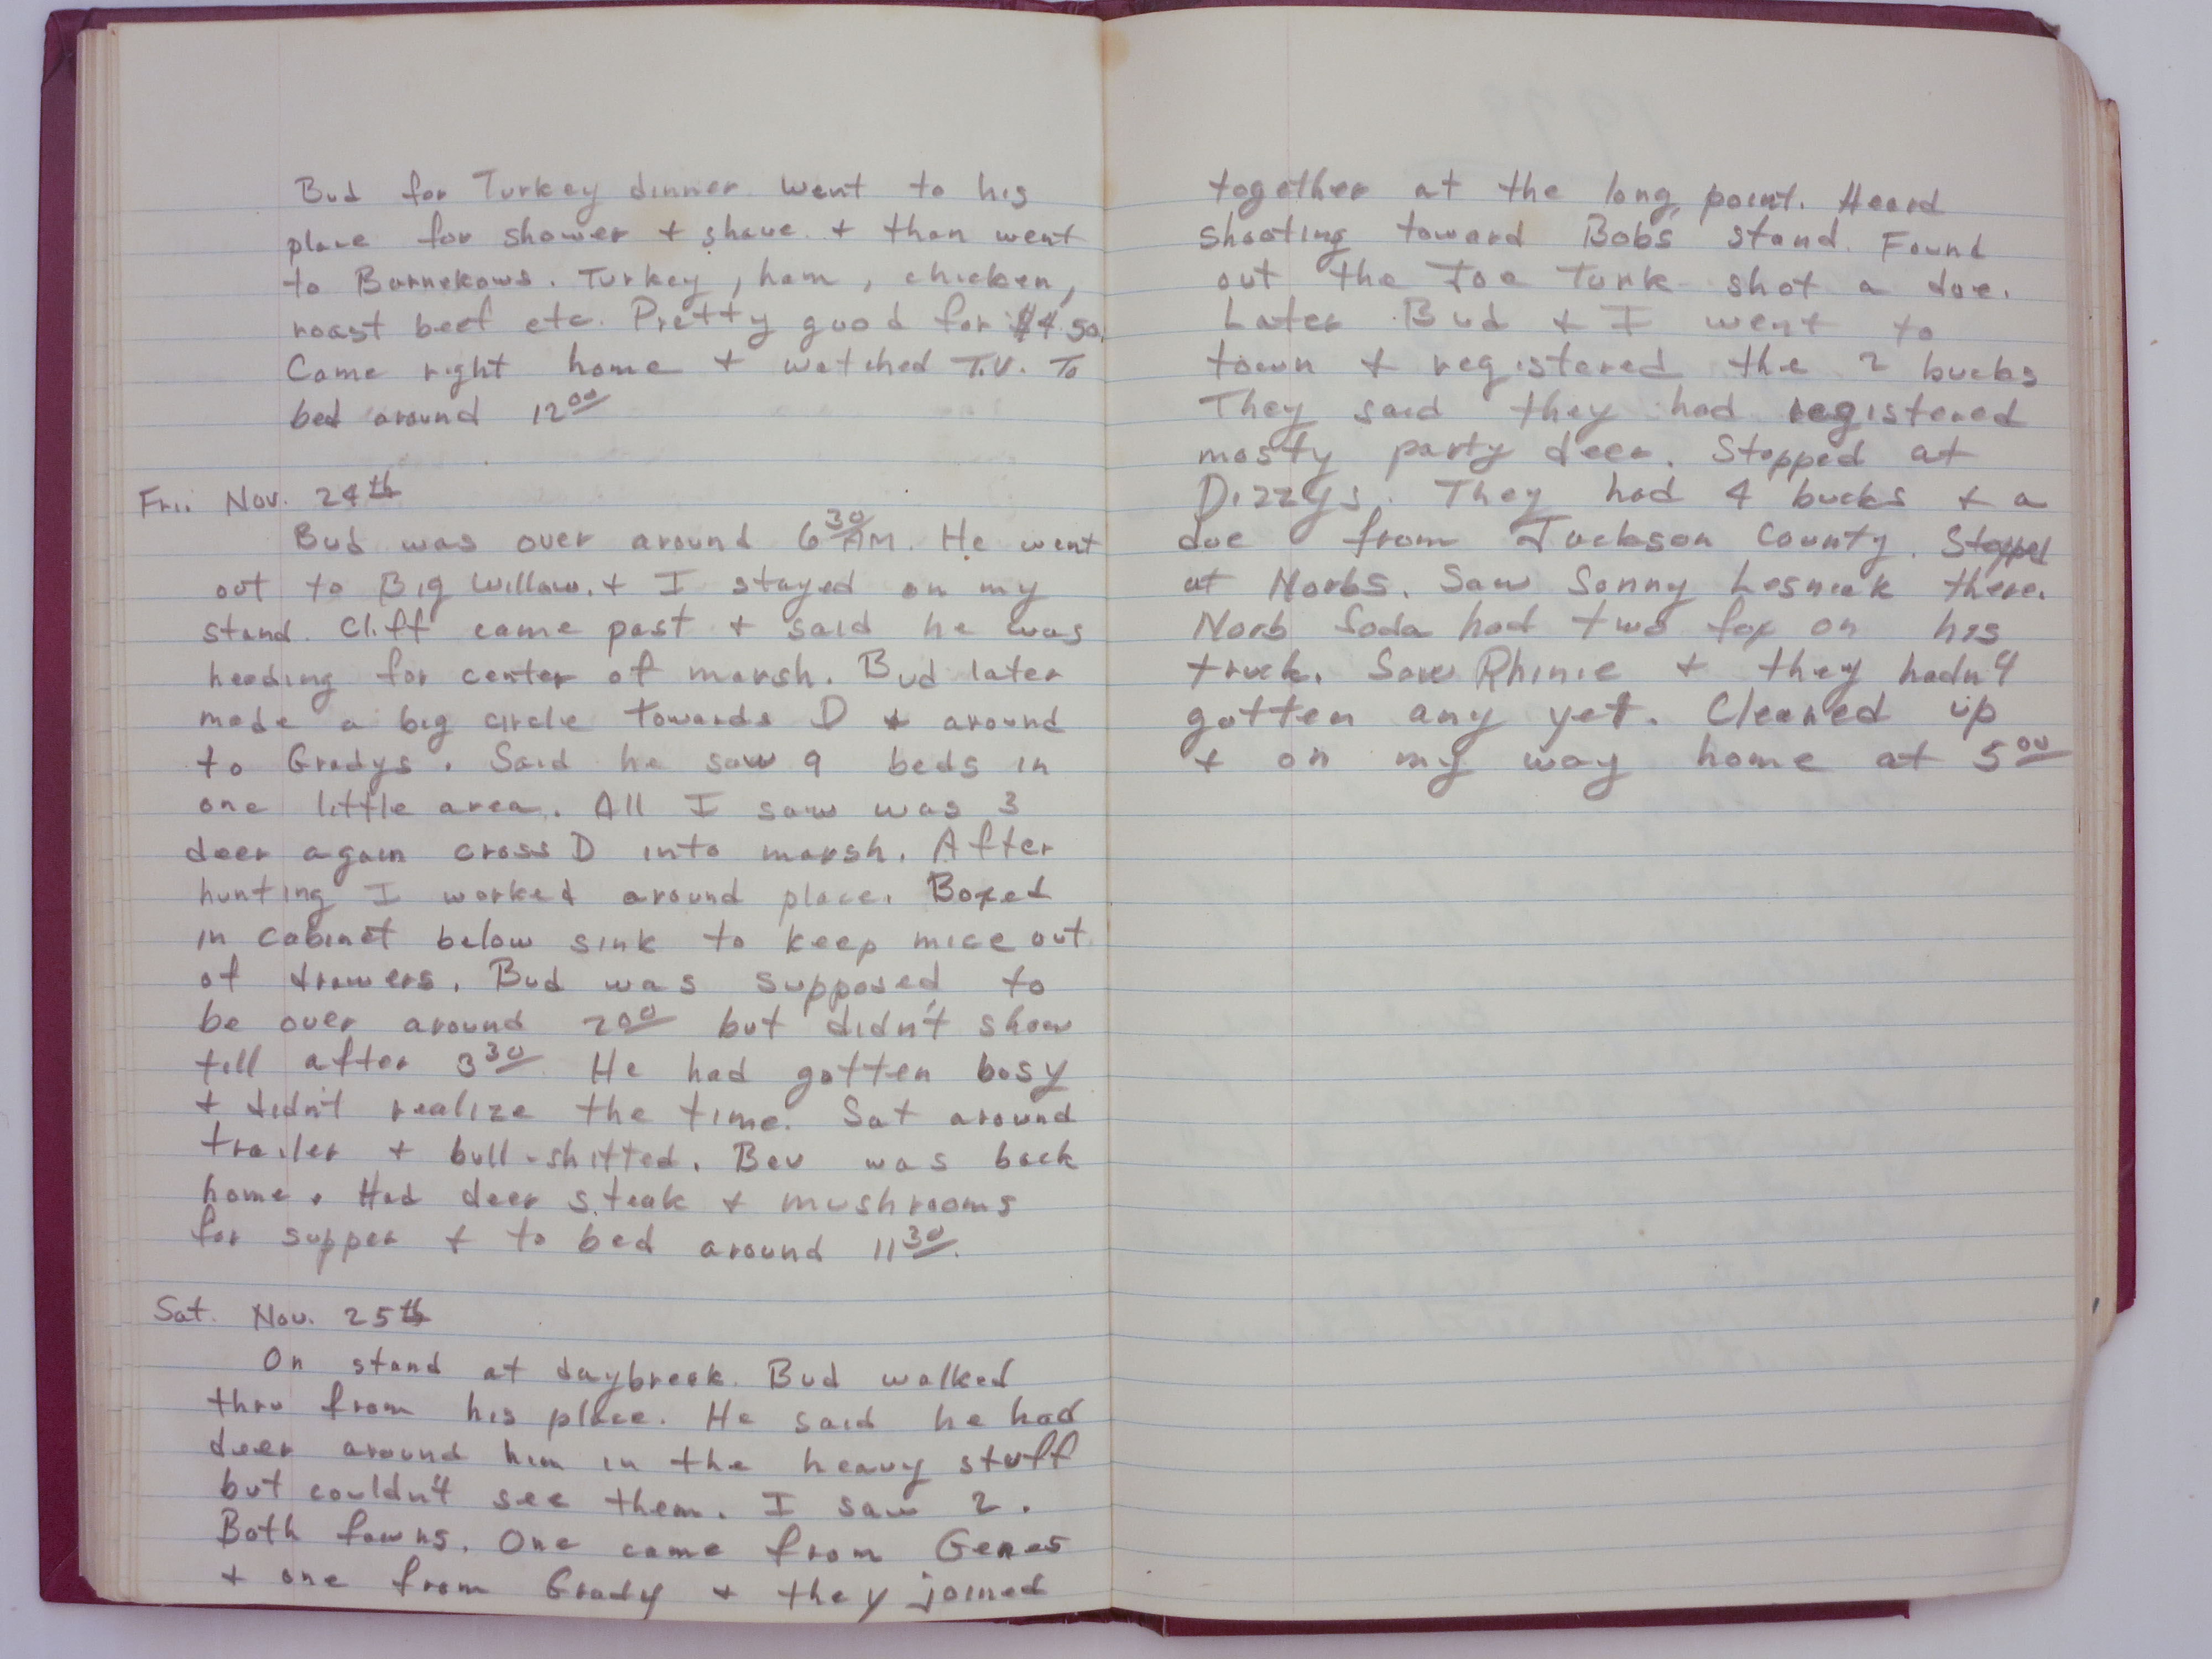 Bud for Turkey dinner went to his
place for shower + shave + than went
to Barnekows. Turkey, ham, chicken,
roast beef etc. Pretty good for $4.50.
Came right home + watched T.V. To
bed around 12⁰⁰
Fri. Nov. 24th
Bud was over around 6³⁰ AM. He went
out to Big Willow. + I stayed on my
stand. Cliff came past + said he was
heading for center of marsh. Bud later
made a big circle towards D + around
to Gradys. Said he saw 9 beds in
one little area. All I saw was 3
deer again cross D into marsh. After
hunting I worked around place. Boxed
in cabinet below sink to keep mice out
of drawers. Bud was supposed to
be over around 2⁰⁰ but didn't show
till after 3³⁰. He had gotten busy
+ didn't realize the time. Sat around
trailer + bull-shitted. Bev was back
home. Had deer steak + mushrooms
for supper + to bed around 11³⁰.
Sat. Nov. 25th
On stand at daybreak. Bud walked
thru from his place. He said he had
deer around him in the heavy stuff
but couldn't see them. I saw 2.
Both fawns. One came from Genes
+ one from Grady + they joined
together at the long point. Heard
shooting toward Bobs' stand. Found
out the Joe Turk shot a doe.
Later Bud + I went to
town + registered the 2 bucks
They said they had registered
mosty party deer. Stopped at
Dizzys. They had 4 bucks + a
doe from Jackson County. Stopped
at Norbs. Saw Sonny Lesniek there.
Norb Soda had two fox on his
truck. Saw Rhinie + they hadn't
gotten any yet. Cleaned up
+ on my way home at 5⁰⁰